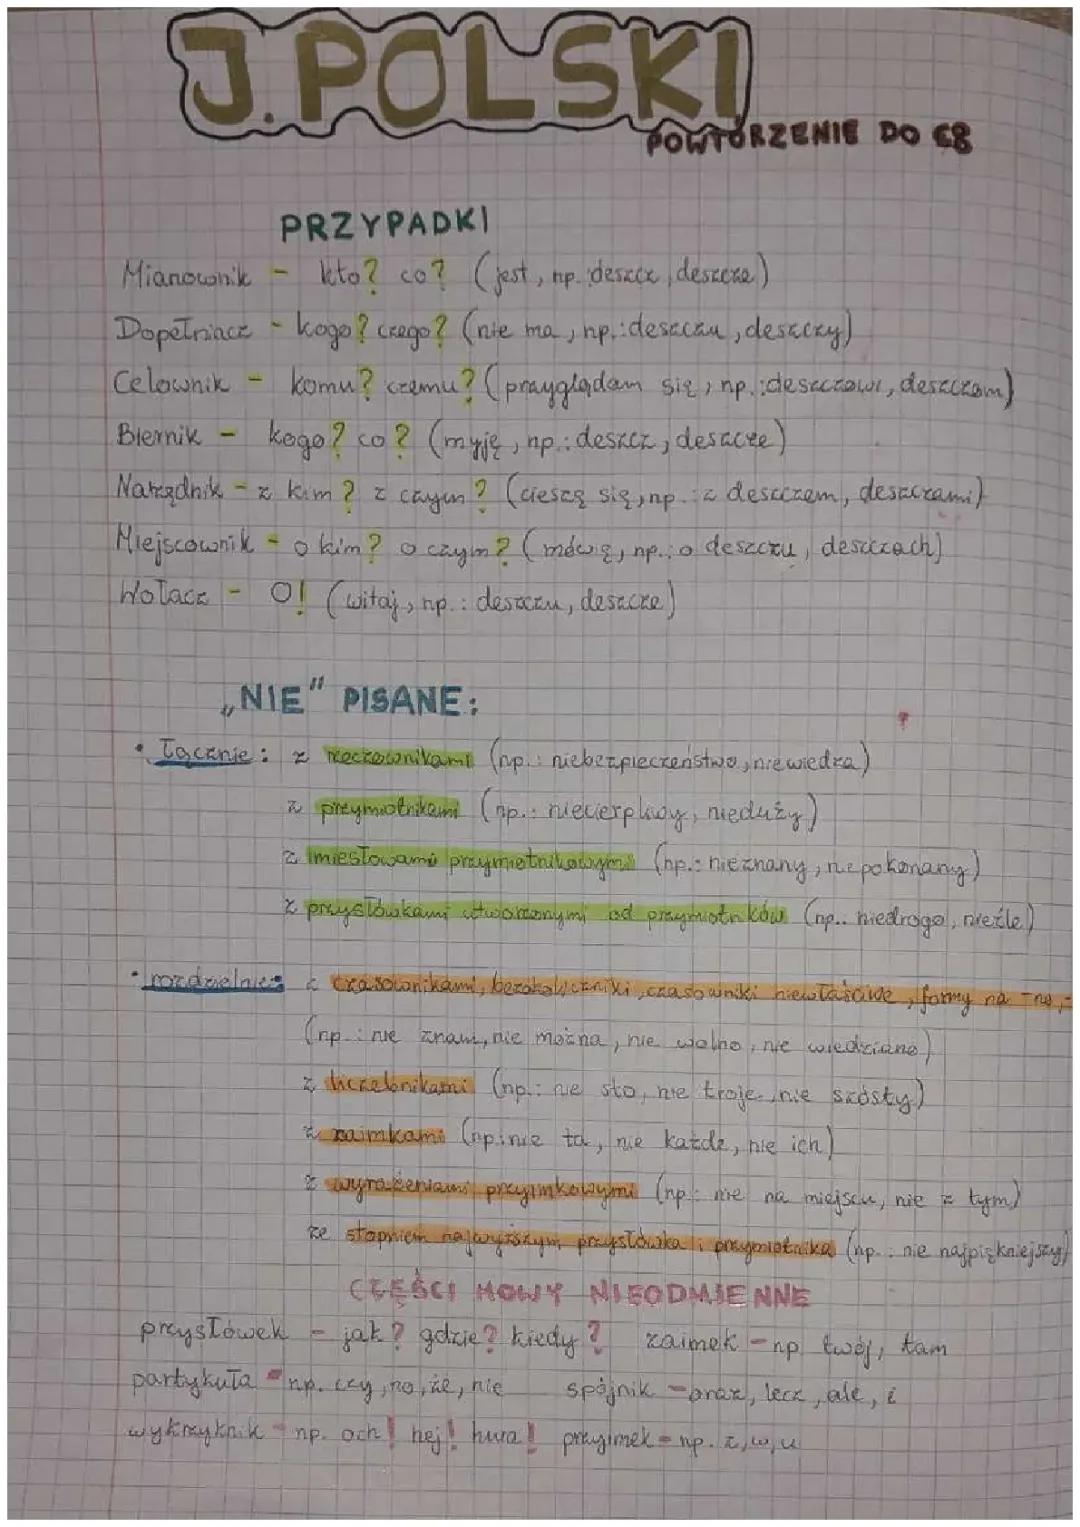 J. POLSKI
POWTÓRZENIE DO E8
PRZYPADKI
Mianownik - kto? co? (jest, np. deszcz, deszcze)
Dopełniacz - kogo? czego? (nie ma, np.: deszczu, deszczy)
Celownik - komu? czemu? (przyglądam się, np.: deszczowi, deszczom)
Biernik - kogo? co? (myję, np.: deszcz, deszcze)
Narzędnik - z kim? z czym? (cieszę się, np.: z deszczem, deszczami)
Miejscownik - o kim? o czym? (mówię, np.: o deszczu, deszczach)
Wołacz - O! (witaj, np.: deszczu, deszcze)
„NIE" PISANE:
• łącznie: z rzeczownikami (np.: niebezpieczeństwo, niewiedza)
z przymiotnikami (np.: niecierpliwy, nieduży)
z imiesłowami przymiotnikowymi (np.: nieznany, niepokonany)
z przysłówkami utworzonymi od przymiotników (np.: niedrogo, nieźle)
• rozdzielnie: z czasownikami, bezokoliczniki, czasowniki niewłaściwe, formy na -no, -
(np.: nie znam, nie można, nie wolno, nie wiedziano)
z liczebnikami (np.: nie sto, nie troje, nie szósty)
z zaimkami (np. nie ta, nie każde, nie ich)
z wyrażeniami przyimkowymi (np.: nie na miejscu, nie z tym)
ze stopniem najwyższym przysłówka i przymiotnika (np.: nie najpiękniejszy)
CZĘŚCI MOWY NIEODMIENNE
przysłówek - jak? gdzie? kiedy? zaimek - np. twój, tam
partykuła - np. czy, no, że, nie spójnik - oraz, lecz, ale, i
wykrzyknik - np. och! hej! hura! przyimek - np. z, w, u